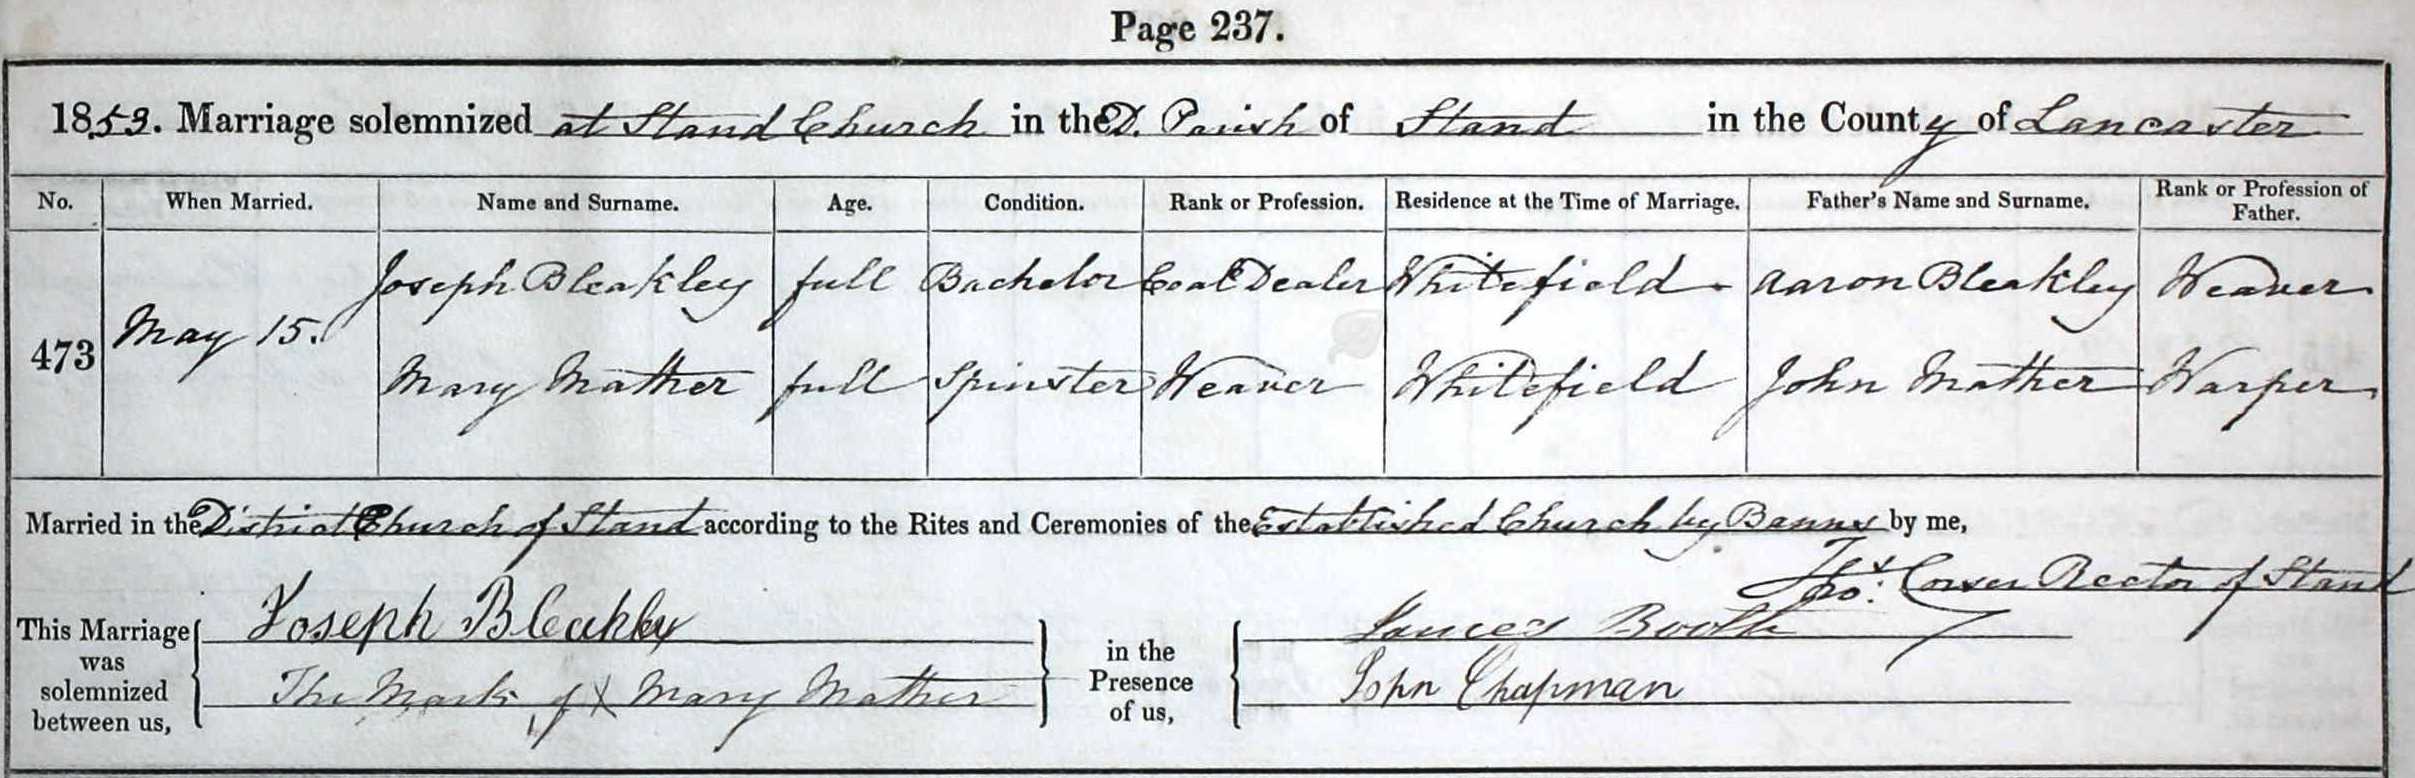 Page 237.
1853. Marriage solemnized at Stand Church in the D. Parish of Stand in the County of Lancaster
No. When Married. Name and Surname. Age. Condition. Rank or Profession. Residence at the Time of Marriage. Father's Name and Surname. Rank or Profession of Father.
Joseph Bleakley full Bachelor Coal Dealer Whitefield Aaron Bleakley Weaver
473 May 15.
Mary Mather full Spinster Weaver Whitefield John Mather Warper
Married in the District Church of Stand according to the Rites and Ceremonies of the Established Church by Banns by me,
Thos. Corser Rector of Stand
This Marriage was solemnized between us,
Joseph Bleakley
The Mark of X Mary Mather
in the Presence of us,
Booth
John Chapman